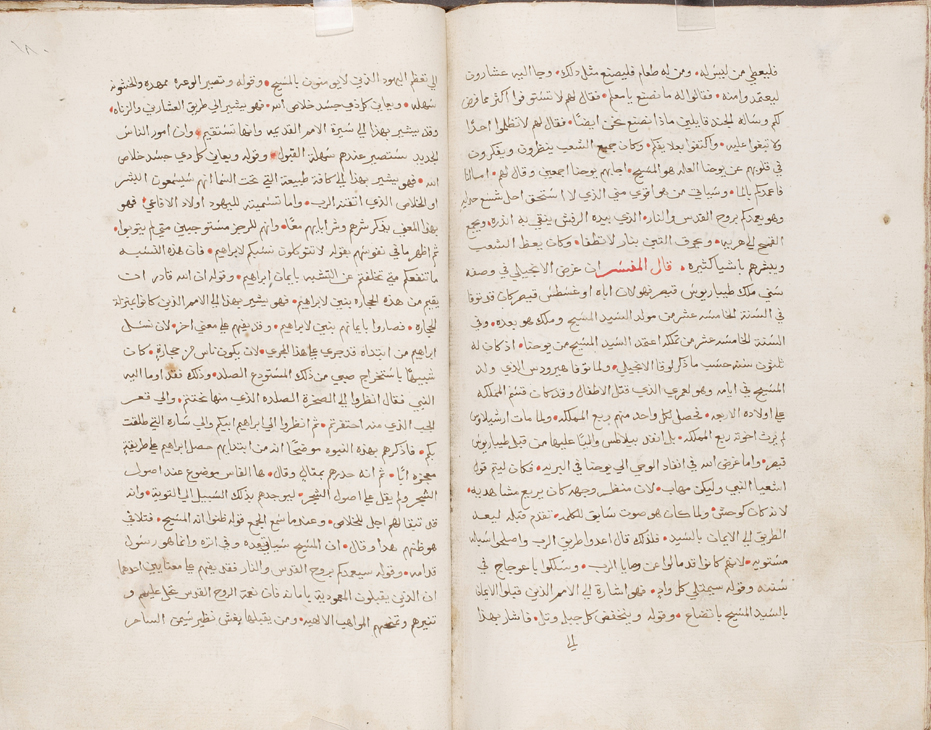 فليعطي من ليس له ومن له طعام فليصنع مثل ذلك وجا اليه عشارون
ليعتمدوا منه فقالوا له ما نصنع يا معلم فقال لهم لا تستوفوا اكثر مما فرض
لكم وساله الجند قايلين ماذا نصنع نحن ايضًا فقال لهم لا تظلموا احدًا
ولا تبغوا عليه واكتفوا بعلايفكم وكان جميع الشعب ينظرون ويفكرون
في قلوبهم عن يوحنا العله هو المسيح اجابهم يوحنا اجمعين وقال لهم اما انا
فاعمدكم بالما وسياتي من هو اقوي مني الذي لا استحق احل شسع حدايه
وهو يعمدكم بروح القدس والنار الذي بيده الرفش ينقي به اندره ويجمع
القمح الي هريه ويحرق التبن بنار لا تطفا وكان يعظ الشعب
ويبشرهم باشيا كثيره قال المفسر ان غرض الانجيلي في وصفه
سني ملك طيباريوس قيصر نهو لان اباه اوغسطس قيصر كان قد توفا
في السنة الخامسه عشر من مولد السيد المسيح وملك هو بعده وفي
السنة الخامسه عشر من تملكه اعتمد السيد المسيح من يوحنا اذ كان له
ثلثون سنه حسب ما ذكر لوقا الانجيلي ولما توفا هيرودس الذي ولد
المسيح في ايامه وهو لعمري الذي قتل الاطفال وقد كان قسم المملكه
علي اولاده الاربعه فحصل لكل واحد منهم ربع المملكه ولما مات ارشيلاوس
لم يرث اخوته ربع المملكه بل انفد بيلاطس واليًا عليها من قبل طيباريوس
قيصر واما غرض الله في انفاد الوحي الي يوحنا في البريه فكان ليتم قول
اشعيا النبي وليكن مهاب لان منظر وجهه كان يريع مشاهديه
لانه كان كوحش ولما كان هو صوت سابق الكلمه تقدم قبله ليعد
الطريق الي الايمان بالسيد فلذلك قال اعدوا طريق الرب واصلحوا سبله
مستويه لانهم كانوا قد مالوا عن وصايا الرب وسلكوا باعوجاج في
سننه وقوله سيمتلي كل وادٍ فهو اشارة الي الامم الذين قبلوا الايمان
بالسيد المسيح باتضاع وقوله وينخفض كل جبل وتل فاشار بهذا
الي
الي تعظم اليهود الذين لا يومنون بالمسيح وقوله وتصير الوعره ممهده والخشنه
سهله ويعاين كل دي جسد خلاص الله فهو يشير الي طريق العشارين والزناه
وقد يشير بهذا الي سيرة الامم القديمه وانها تستقيم وان امور الناس
الجديد ستصير عندهم سهلة القبول وقوله ويعاين كل دي جسد خلاص
الله فهو يشير بهذا الي كافة طبيعة التي تحت السما انهم سيسمعون البشر
او الخلاص الذي اتقنه الرب واما تسميته لليهود اولاد الافاعي فهو
بهذا المعني يذكر شرهم وشر ابايهم معًا وانهم للرجز مستوجبين متي لم يتوبوا
ثم اظهر ما في نفوسهم بقوله لا تتوكلون نسبكم لابراهيم فان هذه النسبه
ما تنفعكم متي تخلفتم عن التشبه بايمان ابراهيم وقوله ان الله قادر ان
يقيم من هذه الحجاره بنين لابراهيم فهو يشير بهذا الي الامم الذين كانوا بمنزلة
الحجاره فصاروا بايمانهم بنين لابراهيم وقد يفهم علي معني اخر لان نسل
ابراهيم من ابتداه قد جري علي هذا المجري لان يكون ناس من حجارة كان
شبيهًا باستخراج صبي من ذلك المستودع الصلد وذلك فقد اوما اليه
النبي فقال انظروا الي الصخرة الصلده الذي منها نحتتم والي قعر
الجب الذي منه احتفرتم ثم انظروا الي ابراهيم ابيكم والي ساره التي طلقت
بكم فاذكرهم بهذه النبوه موضحًا انه من ابتدايهم حصل ابراهيم علي طريقة
معجزه ابًا ثم انه حذرهم بمقالي وقال ها الفاس موضوع عند اصول
الشجر ولم يقل علي اصول الشجر ليوجدهم بذلك السبيل الي التوبة وانه
قد تبقا لهم اجل للخلاص وعندما سمع الجمع قوله ظنوا انه المسيح فتلافي
هو ظنهم هدا وقال ان المسيح سياتي بعده وفي اثره وانما هو رسول
قدامه وقوله سيعمدكم بروح القدس والنار فقد يفهم علي معنايين احدهما
ان الذين يقبلون المعمودية بامانه فان نعمة الروح القدس تحل عليهم و
تنيرهم وتمنحهم المواهب الالهيه ومن يقبلها بغش نظير سيمن الساحر